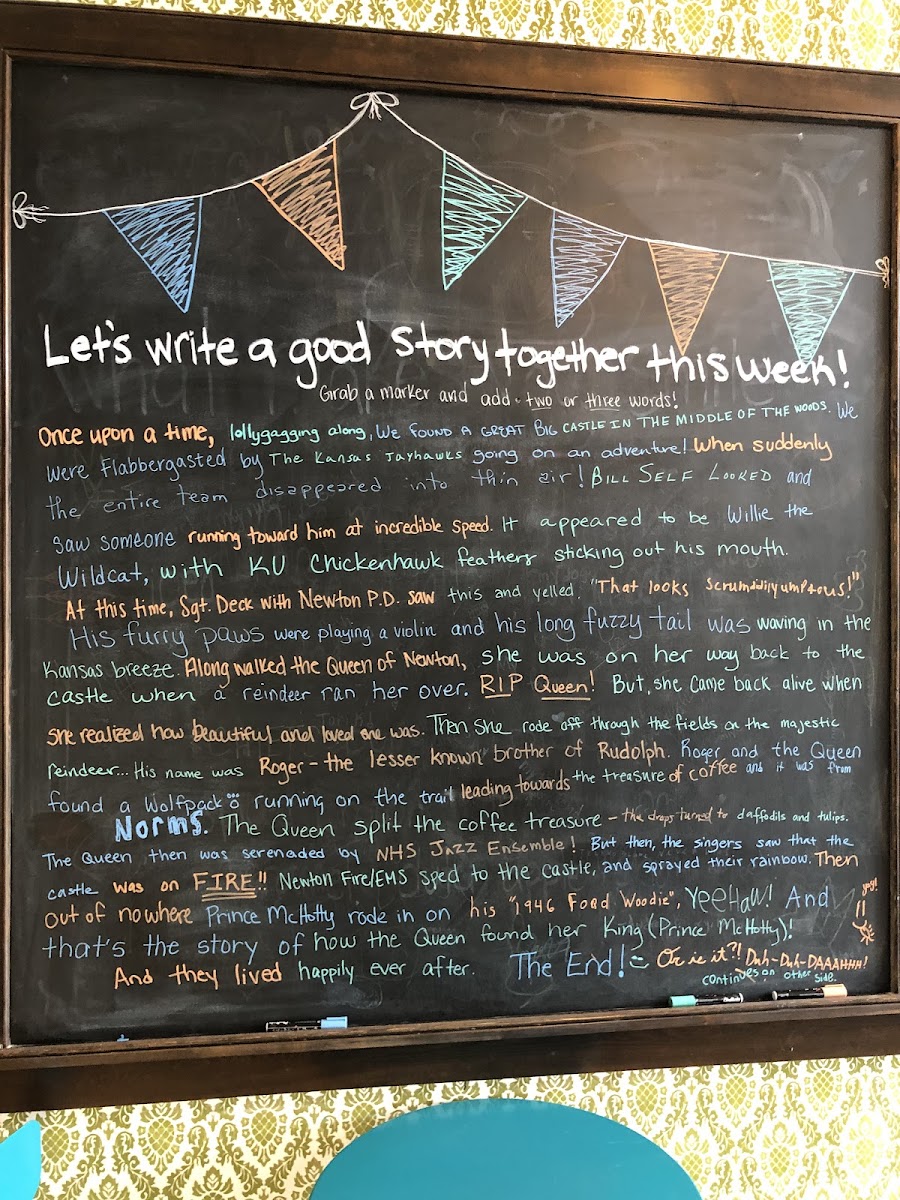 Let's write a good story together this week!
Grab a marker and add two or three words!
Once upon a time, lollygagging along, We FOUND A GREAT BIG CASTLE IN THE MIDDLE OF THE WOODS. We
were flabbergasted by The Kansas Jayhawks going on an adventure! When suddenly
the entire team disappeared into thin air! BILL SELF LOOKED and
saw someone running toward him at incredible speed. It appeared to be Willie the
Wildcat, with KU Chickenhawk feathers sticking out his mouth.
At this time, Sgt. Deck with Newton P.D. saw this and yelled, "That looks Scrumddilyumptous!"
His furry paws were playing a violin and his long fuzzy tail was waving in the
Kansas breeze. Along walked the Queen of Newton, she was on her way back to the
castle when a reindeer ran her over. RIP Queen! But, she came back alive when
she realized how beautiful and loved one was. Then she rode off through the fields on the majestic
reindeer... His name was Roger - the lesser known brother of Rudolph. Roger and the Queen
found a Wolfpack running on the trail leading towards the treasure of coffee and it was from
NORMS. The Queen split the coffee treasure - the drops turned to daffodils and tulips.
The Queen then was serenaded by NHS Jazz Ensemble! But then, the singers saw that the
castle was on FIRE!! Newton Fire/EMS sped to the castle, and sprayed their rainbow. Then
out of nowhere Prince McHotty rode in on his "1946 Ford Woodie", YeeHaW! And yay!
that's the story of how the Queen found her King (Prince McHotty)!
And they lived happily ever after. The End! Or is it?! Duh-Duh-DAAAHHH!
continues on other side.